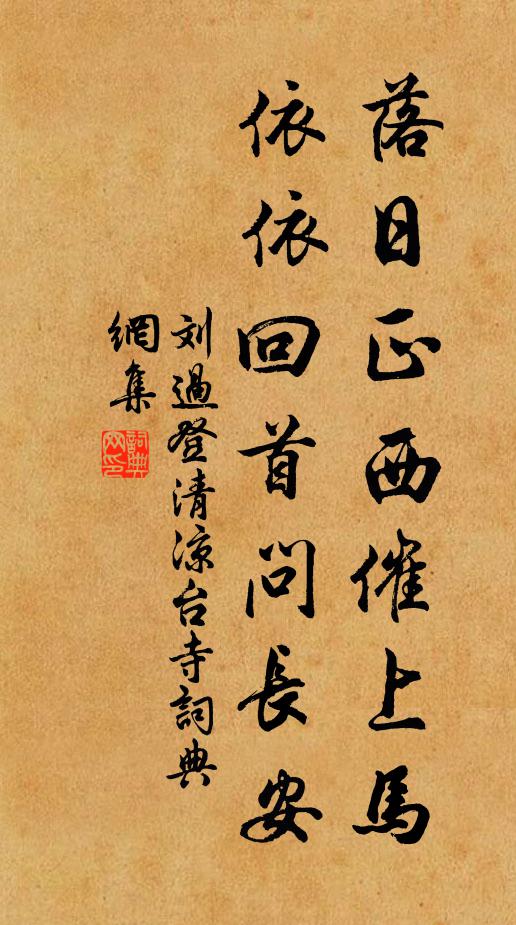 落日正西催上馬
依依回首問長安
刘過登清凉台寺詞典
網集
詞典
网印